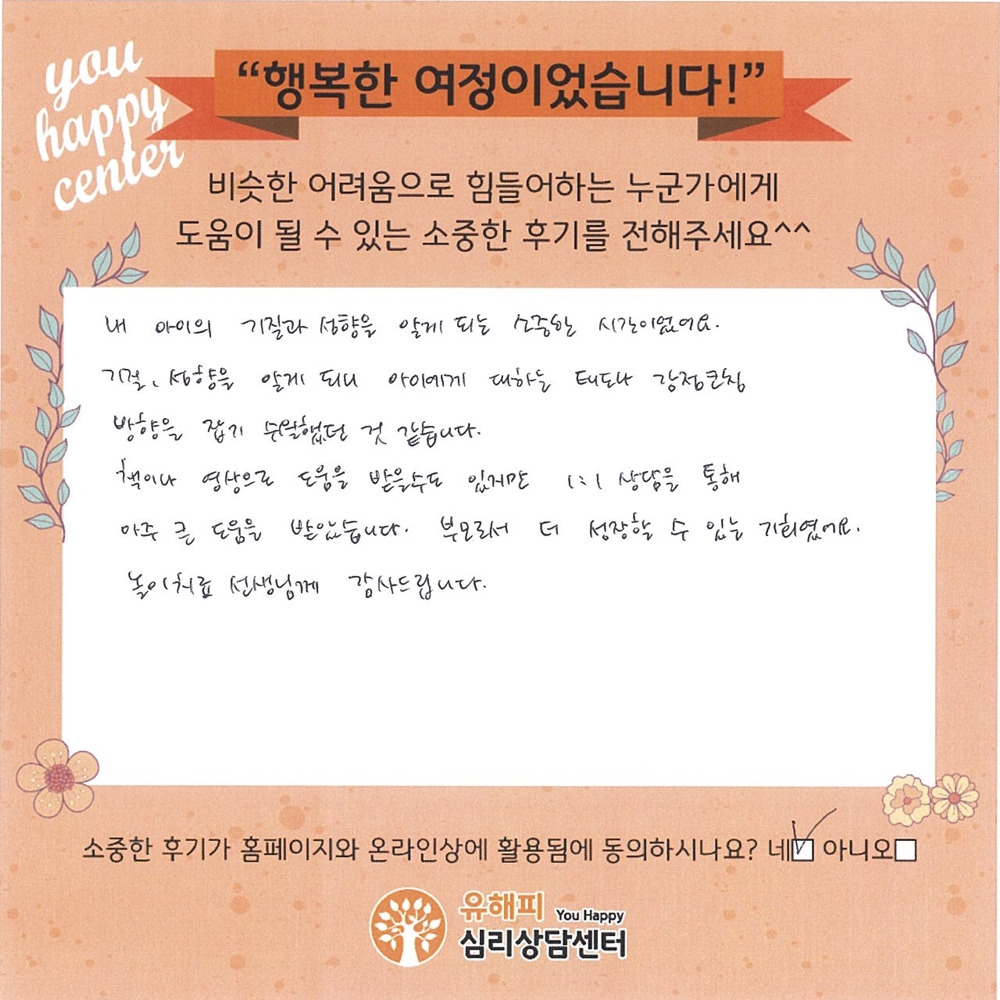 you
happy
center
“행복한 여정이었습니다!”
비슷한 어려움으로 힘들어하는 누군가에게
도움이 될 수 있는 소중한 후기를 전해주세요^^
내 아이의 기질과 성향을 알게 되는 소중한 시간이었어요.
기질, 성향을 알게 되니 아이에게 대하는 태도나 감정코칭
방향을 잡기 수월했던 것 같습니다.
책이나 영상으로 도움을 받을수도 있지만 1:1 상담을 통해
아주 큰 도움을 받았습니다. 부모로서 더 성장할 수 있는 기회였어요.
놀이치료 선생님께 감사드립니다.
소중한 후기가 홈페이지와 온라인상에 활용됨에 동의하시나요? 네 아니오
유해피 You Happy
심리상담센터